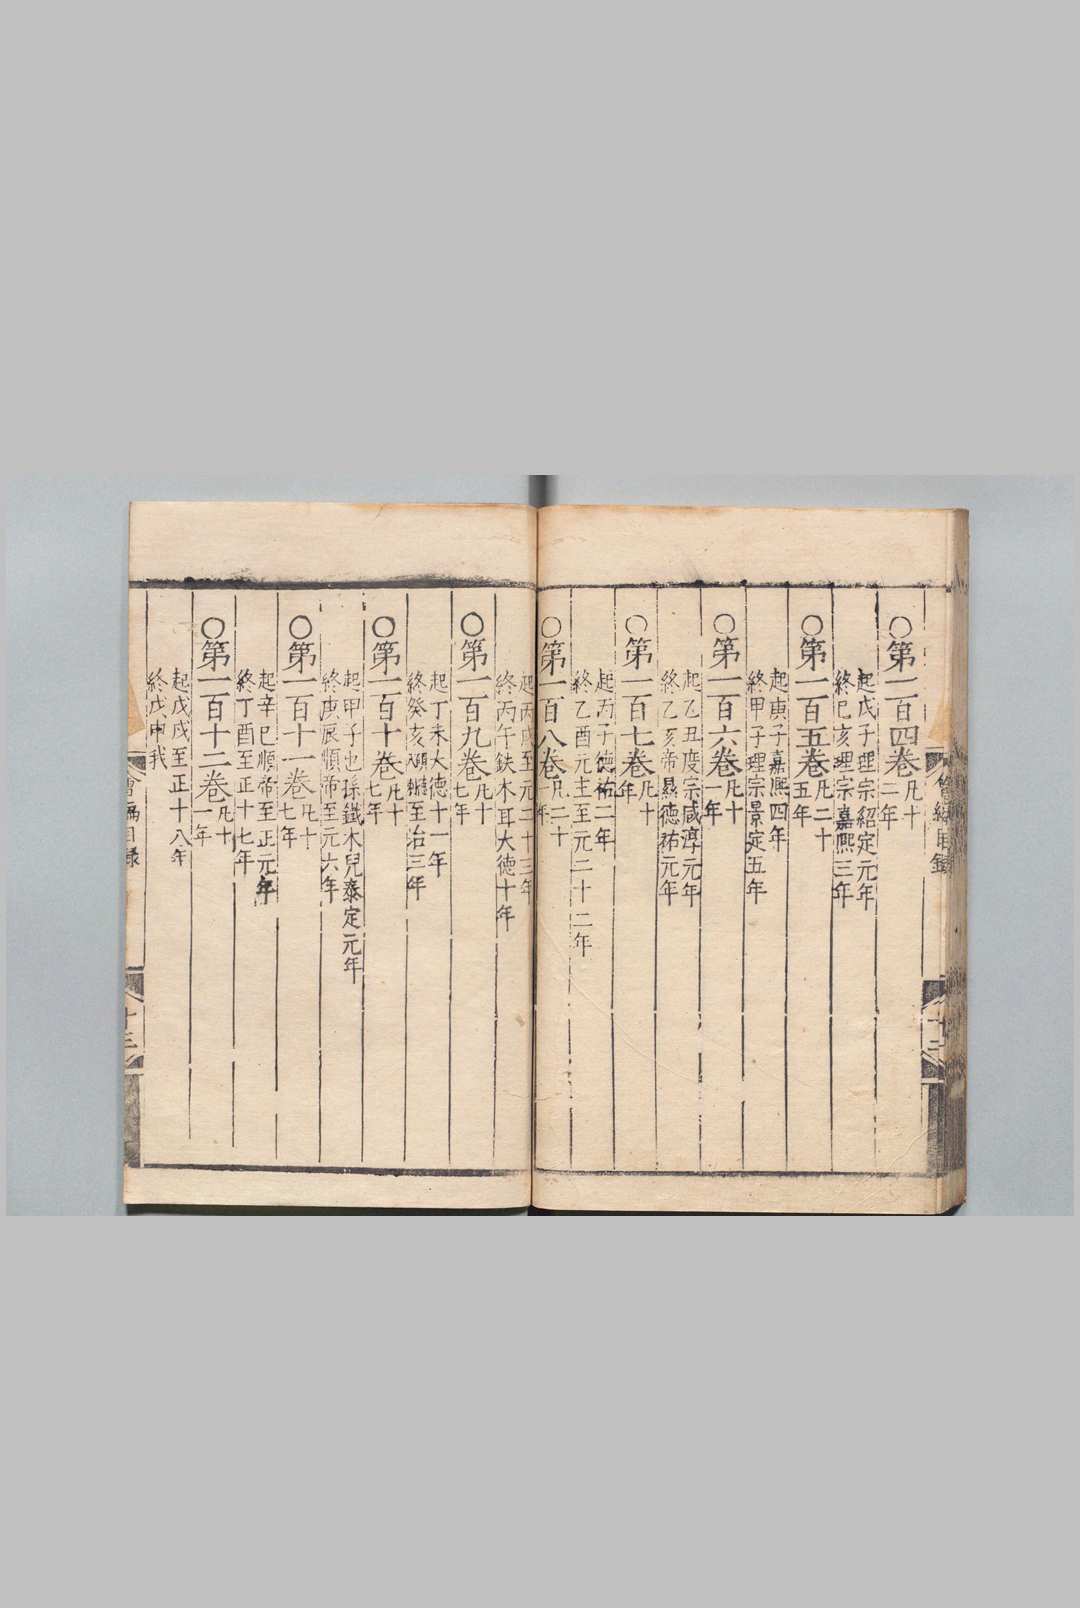 ○第一百四卷 凡十二年
起戊子理宗紹定元年
終己亥理宗嘉熙三年
○第一百五卷 凡二十五年
起庚子嘉熙四年
終甲子理宗景定五年
○第一百六卷 凡十一年
起乙丑度宗咸淳元年
終乙亥帝㬎德祐元年
○第一百七卷 凡十年
起丙子德祐二年
終乙酉元主至元二十二年
○第一百八卷 凡二十一年
起丙戌至元二十三年
終丙午鉄木耳大德十年
○第一百九卷 凡十七年
起丁未大德十一年
終癸亥碩至治三年
○第一百十卷 凡十七年
起甲子也孫鐵木兒泰定元年
終庚辰順帝至元六年
○第一百十一卷 凡十七年
起辛巳順帝至正元年
終丁酉至正十七年
○第一百十二卷 凡十一年
起戊戌至正十八年
終戊申我
會編目錄
十三